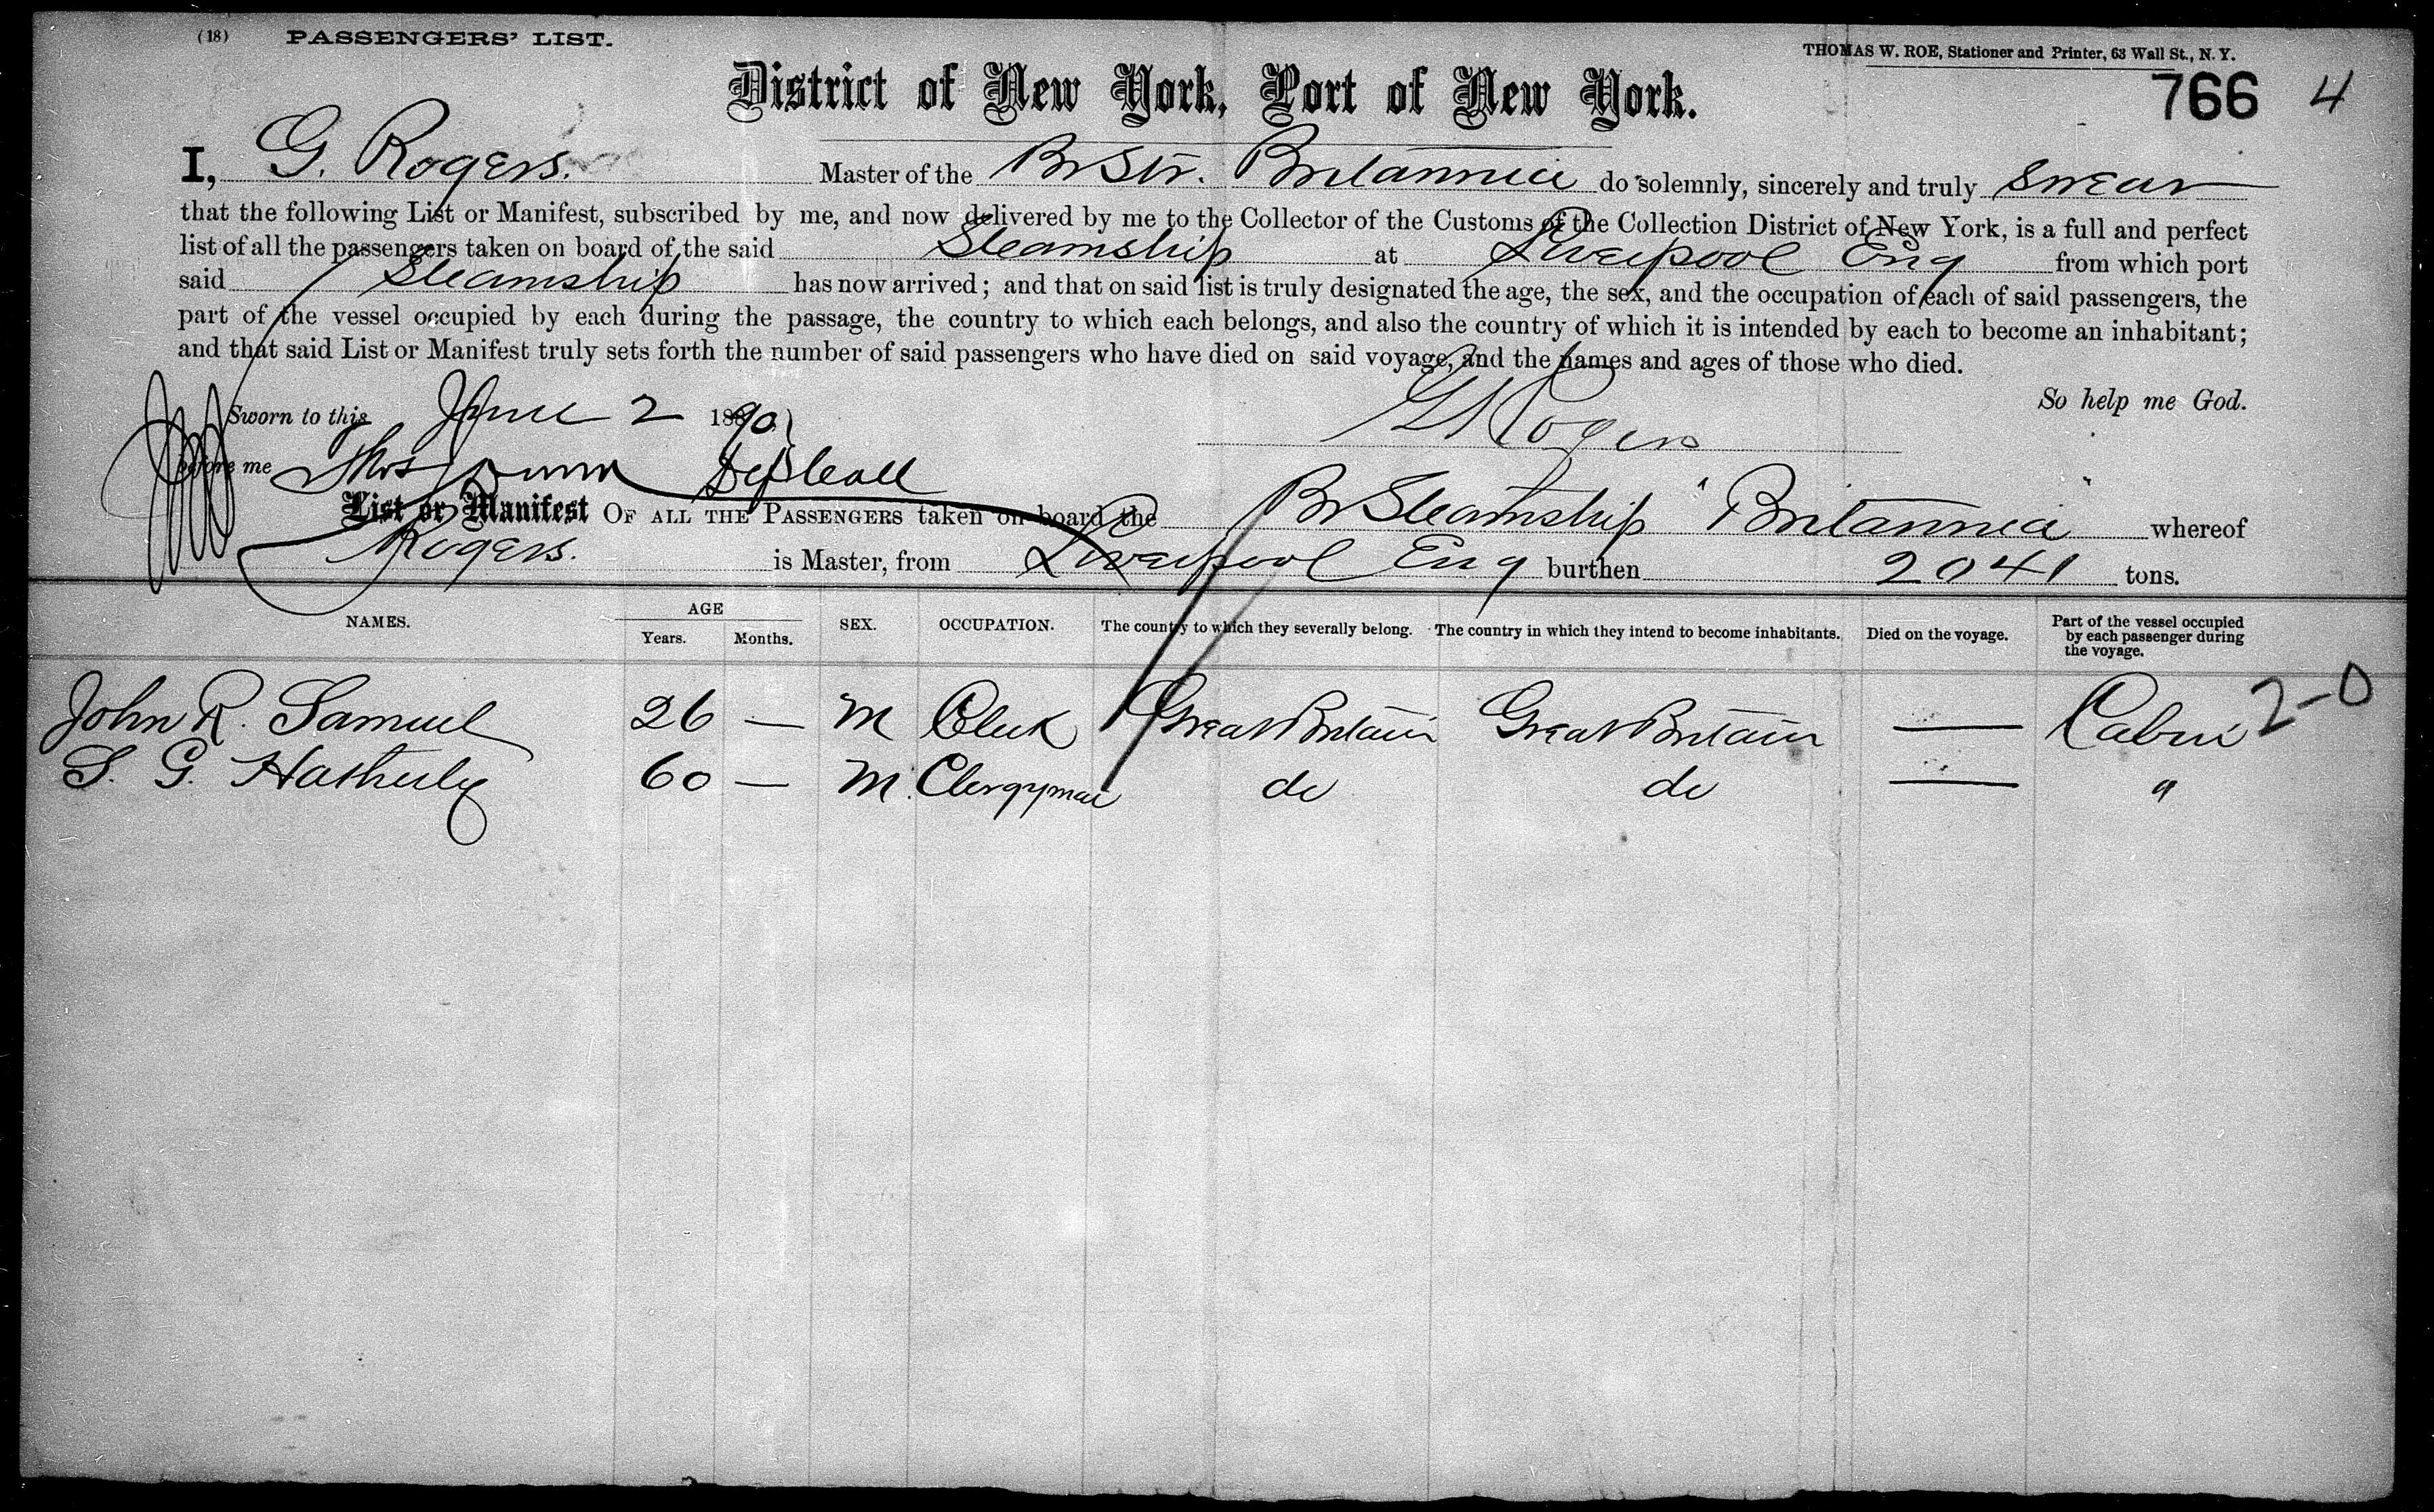 (18) PASSENGERS' LIST.
THOMAS W. ROE, Stationer and Printer, 63 Wall St., N. Y.
District of New York, Port of New York.
766 4
I, G. Rogers. Master of the Br Str. Britannia do solemnly, sincerely and truly swear
that the following List or Manifest, subscribed by me, and now delivered by me to the Collector of the Customs of the Collection District of New York, is a full and perfect
list of all the passengers taken on board of the said Steamship at Liverpool Eng from which port
said Steamship has now arrived; and that on said list is truly designated the age, the sex, and the occupation of each of said passengers, the
part of the vessel occupied by each during the passage, the country to which each belongs, and also the country of which it is intended by each to become an inhabitant;
and that said List or Manifest truly sets forth the number of said passengers who have died on said voyage, and the names and ages of those who died.
So help me God.
Sworn to this June 2 1890
G Rogers
before me
List or Manifest OF ALL THE PASSENGERS taken on board the Br Steamship "Britannia" whereof
Rogers. is Master, from Liverpool Eng burthen 2041 tons.
NAMES. AGE Years. Months. SEX. OCCUPATION. The country to which they severally belong. The country in which they intend to become inhabitants. Died on the voyage. Part of the vessel occupied by each passenger during the voyage.
John R. Samuel 26 — M Clerk Great Britain Great Britain — Cabin 2-0
S. G. Hatherly 60 — M. Clergyman do do — "